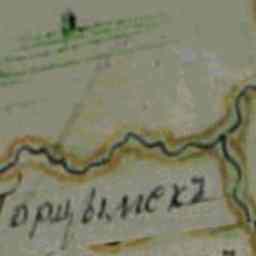 Торцымехъ